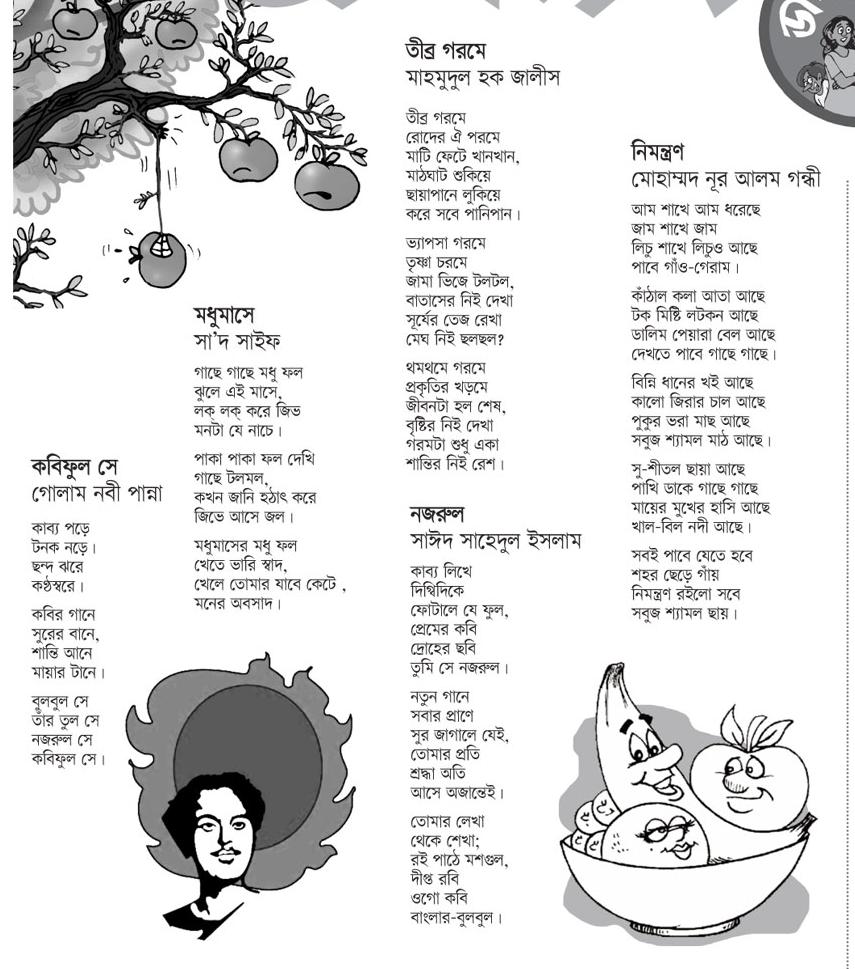 তীব্র গরমে
মাহমুদুল হক জালীস
তীব্র গরমে
রোদের ঐ পরমে
মাটি ফেটে খানখান,
মাঠঘাট শুকিয়ে
ছায়াপানে লুকিয়ে
করে সবে পানিপান।
ভ্যাপসা গরমে
তৃষ্ণা চরমে
জামা ভিজে টলটল,
বাতাসের নিই দেখা
সূর্যের তেজ রেখা
মেঘ নিই ছলছল?
থমথমে গরমে
প্রকৃতির খড়মে
জীবনটা হল শেষ,
বৃষ্টির নিই দেখা
গরমটা শুধু একা
শান্তির নিই রেশ।
নিমন্ত্রণ
মোহাম্মদ নূর আলম গন্ধী
আম শাখে আম ধরেছে
জাম শাখে জাম
লিচু শাখে লিচুও আছে
পাবে গাঁও-গেরাম।
কাঁঠাল কলা আতা আছে
টক মিষ্টি লটকন আছে
ডালিম পেয়ারা বেল আছে
দেখতে পাবে গাছে গাছে।
বিন্নি ধানের খই আছে
কালো জিরার চাল আছে
পুকুর ভরা মাছ আছে
সবুজ শ্যামল মাঠ আছে।
সু-শীতল ছায়া আছে
পাখি ডাকে গাছে গাছে
মায়ের মুখের হাসি আছে
খাল-বিল নদী আছে।
সবই পাবে যেতে হবে
শহর ছেড়ে গাঁয়
নিমন্ত্রণ রইলো সবে
সবুজ শ্যামল ছায়।
মধুমাসে
সা'দ সাইফ
গাছে গাছে মধু ফল
ঝুলে এই মাসে,
লক্ লক্ করে জিভ
মনটা যে নাচে।
পাকা পাকা ফল দেখি
গাছে টলমল,
কখন জানি হঠাৎ করে
জিভে আসে জল।
মধুমাসের মধু ফল
খেতে ভারি স্বাদ,
খেলে তোমার যাবে কেটে ,
মনের অবসাদ।
কবিফুল সে
গোলাম নবী পান্না
কাব্য পড়ে
টনক নড়ে।
ছন্দ ঝরে
কণ্ঠস্বরে।
কবির গানে
সুরের বানে,
শান্তি আনে
মায়ার টানে।
বুলবুল সে
তাঁর তুল সে
নজরুল সে
কবিফুল সে।
নজরুল
সাঈদ সাহেদুল ইসলাম
কাব্য লিখে
দিগ্বিদিকে
ফোটালে যে ফুল,
প্রেমের কবি
দ্রোহের ছবি
তুমি সে নজরুল।
নতুন গানে
সবার প্রাণে
সুর জাগালে যেই,
তোমার প্রতি
শ্রদ্ধা অতি
আসে অজান্তেই।
তোমার লেখা
থেকে শেখা;
রই পাঠে মশগুল,
দীপ্ত রবি
ওগো কবি
বাংলার-বুলবুল।